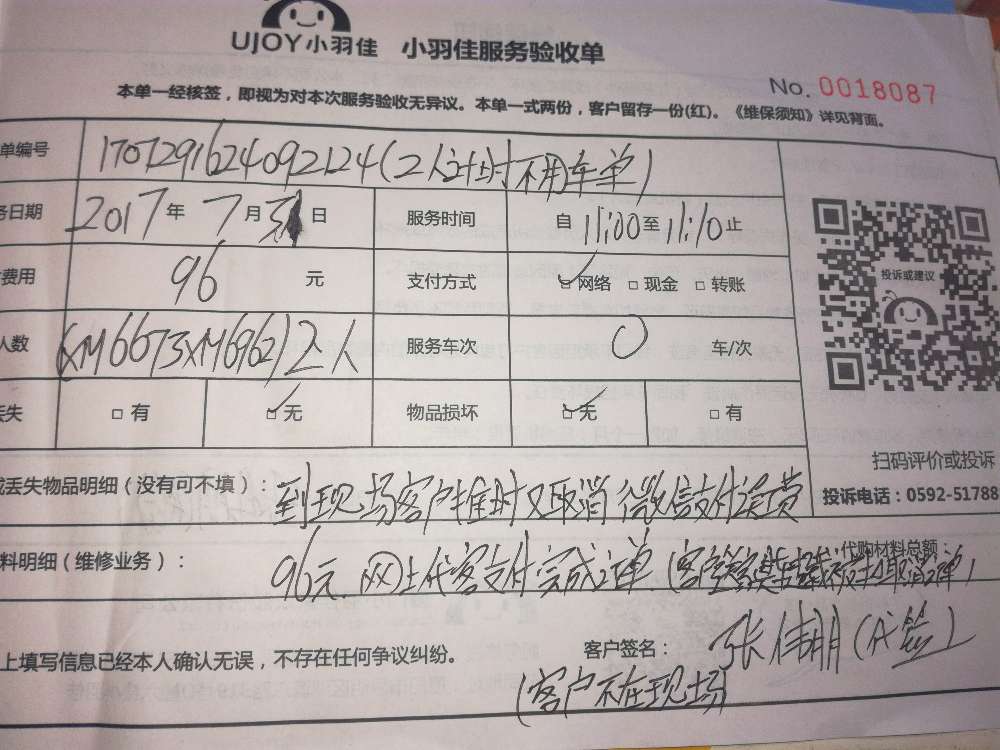 UJOY小羽佳 小羽佳服务验收单
No. 0018087
本单一经核签，即视为对本次服务验收无异议。本单一式两份，客户留存一份(红)。《维保须知》详见背面。
单编号 1707291624092124(2人计时不用车单)
务日期 2017年7月31日 服务时间 自11:00至11:10止
费用 96元 支付方式 网络 现金 转账
人数 (XM6673XM6962)2人 服务车次 0 车/次
丢失 有 无 物品损坏 无 有
投诉或建议
扫码评价或投诉
投诉电话：0592-51788
或丢失物品明细（没有可不填）：到现场客户推时又取消 微信支付误费
料明细（维修业务）： 代购材料总额：
96元.网上代客支付完成订单(客 取消订单)
上填写信息已经本人确认无误，不存在任何争议纠纷。 客户签名： 张伟朋(代签)
(客户不在现场)